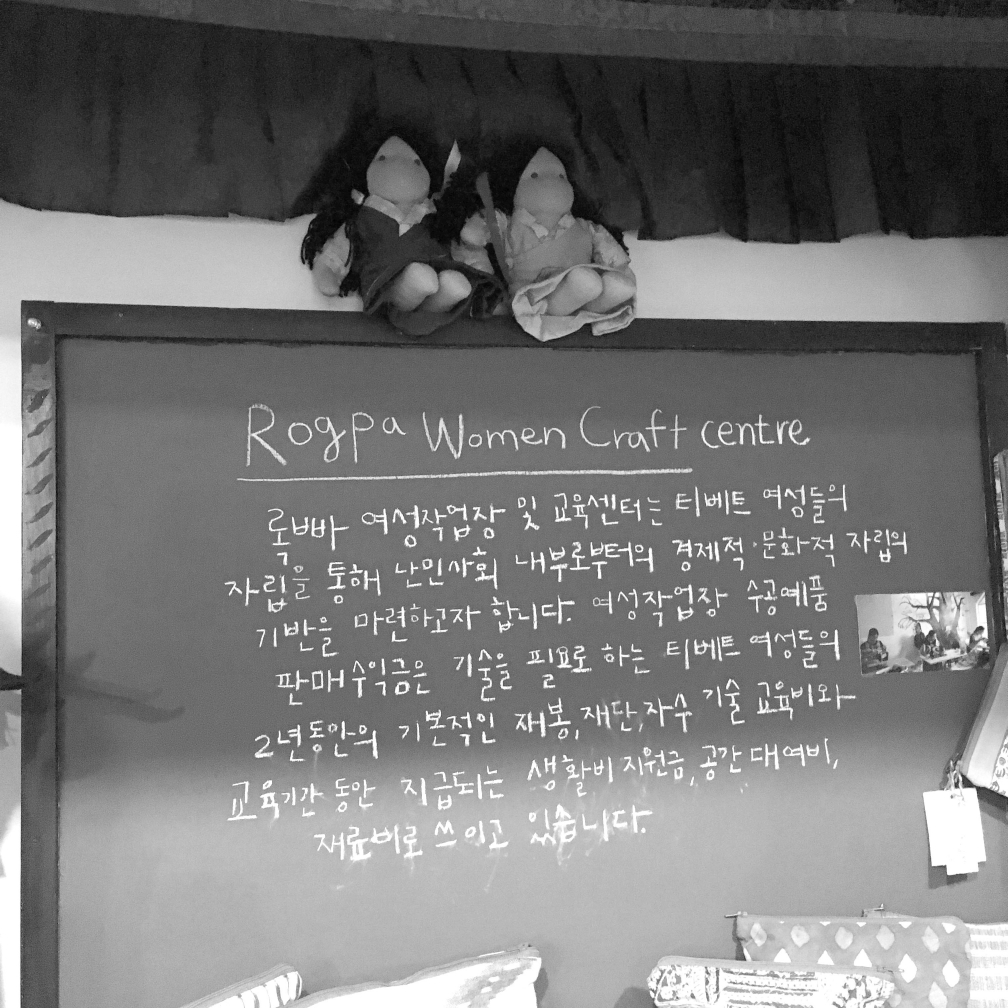 Rogpa Women Craft centre
록빠 여성작업장 및 교육센터는 티베트 여성들의
자립을 통해 난민사회 내부로부터의 경제적·문화적 자립의
기반을 마련하고자 합니다. 여성작업장 수공예품
판매수익금은 기술을 필요로 하는 티베트 여성들의
2년동안의 기본적인 재봉, 재단, 자수 기술 교육비와
교육기간 동안 지급되는 생활비 지원금, 공간 대여비,
재료비로 쓰이고 있습니다.